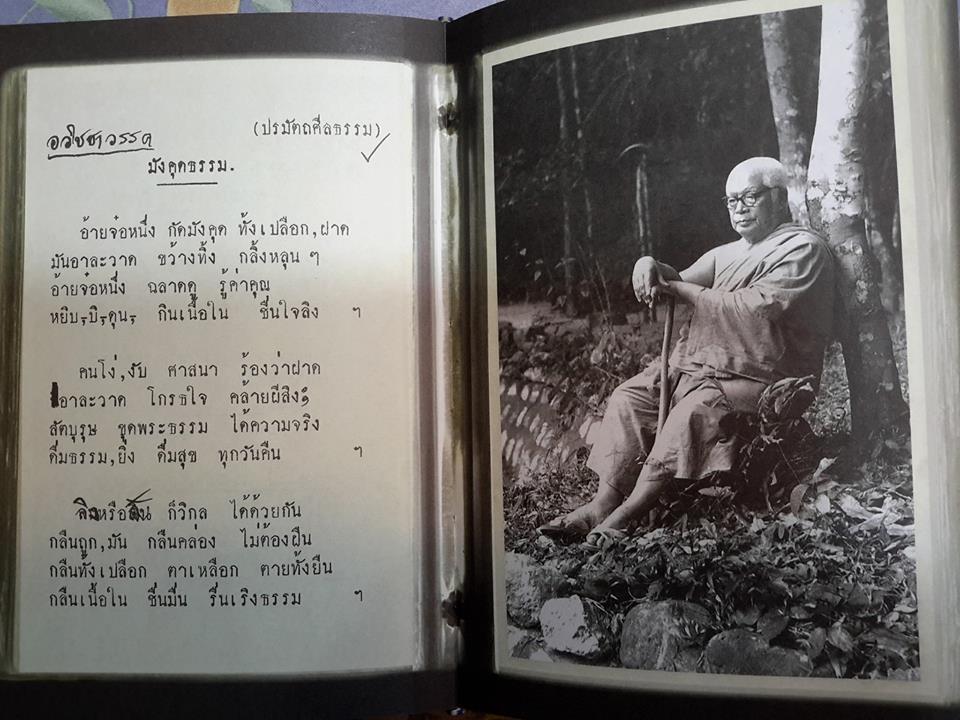 อวิชชาวรรค
(ปรมัตถศีลธรรม)
มังคุดธรรม.
อ้ายจ๋อหนึ่ง กัดมังคุด ทั้งเปลือก,ฝาด
มันอาละวาด ขว้างทิ้ง กลิ้งหลุน ๆ
อ้ายจ๋อหนึ่ง ฉลาดดู รู้ค่าคุณ
หยิบ,บิ,ดุน, กินเนื้อใน ชื่นใจลิง ฯ
คนโง่,งับ ศาสนา ร้องว่าฝาด
อาละวาด โกรธใจ คล้ายผีสิง;
สัตบุรุษ ขุดพระธรรม ได้ความจริง
ดื่มธรรม,ยิ่ง ดื่มสุข ทุกวันคืน ฯ
หรือ ก็วิกล ได้ด้วยกัน
กลืนถูก,มัน กลืนคล่อง ไม่ต้องฝืน
กลืนทั้งเปลือก ตาเหลือก ตายทั้งยืน
กลืนเนื้อใน ชื่นมื่น รื่นเริงธรรม ฯ